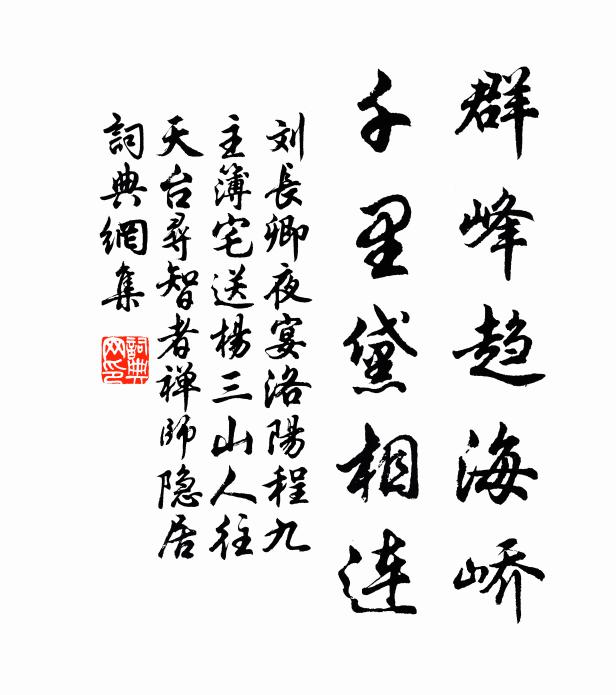 群峰趋海峤
千里黛相連
刘長卿夜宴洛陽程九
主簿宅送楊三山人往
天台尋智者禅师隐居
詞典網集
詞典网印